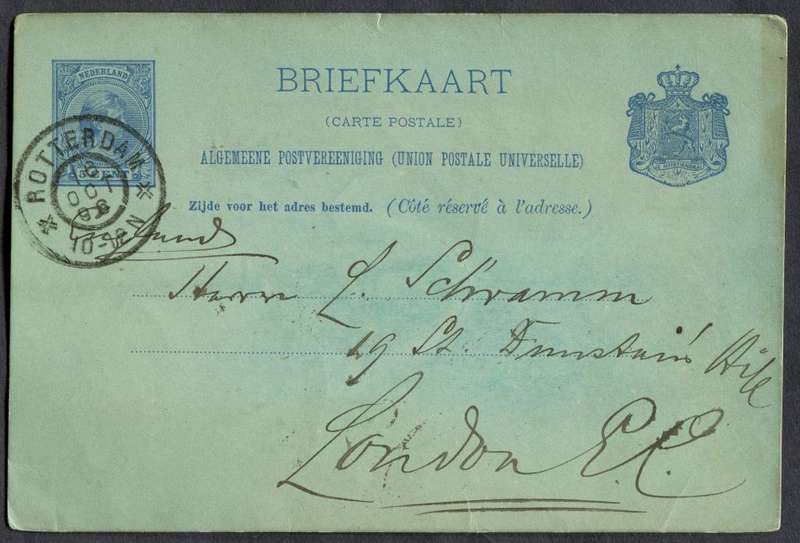 NEDERLAND
BRIEFKAART
(CARTE POSTALE)
ALGEMEENE POSTVEREENIGING (UNION POSTALE UNIVERSELLE)
Zijde voor het adres bestemd. (Côté réservé à l'adresse.)
ROTTERDAM
OCT
10-12N
England
Herrn L. Schramm
19 St. Dunstain's Hill
London E.C.